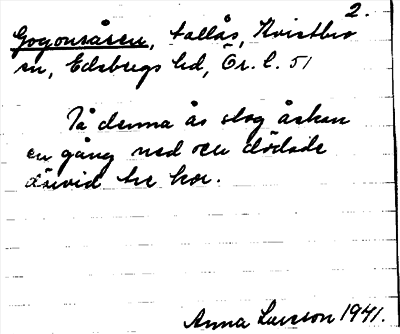 2.
Gogonsåsen, tallås, Kvistbro
sn, Edsbergs hd, Ör. l. 51
På denna ås slog åskan
en gång ned och dödade
därvid tre kor.
Anna Larsson 1941.